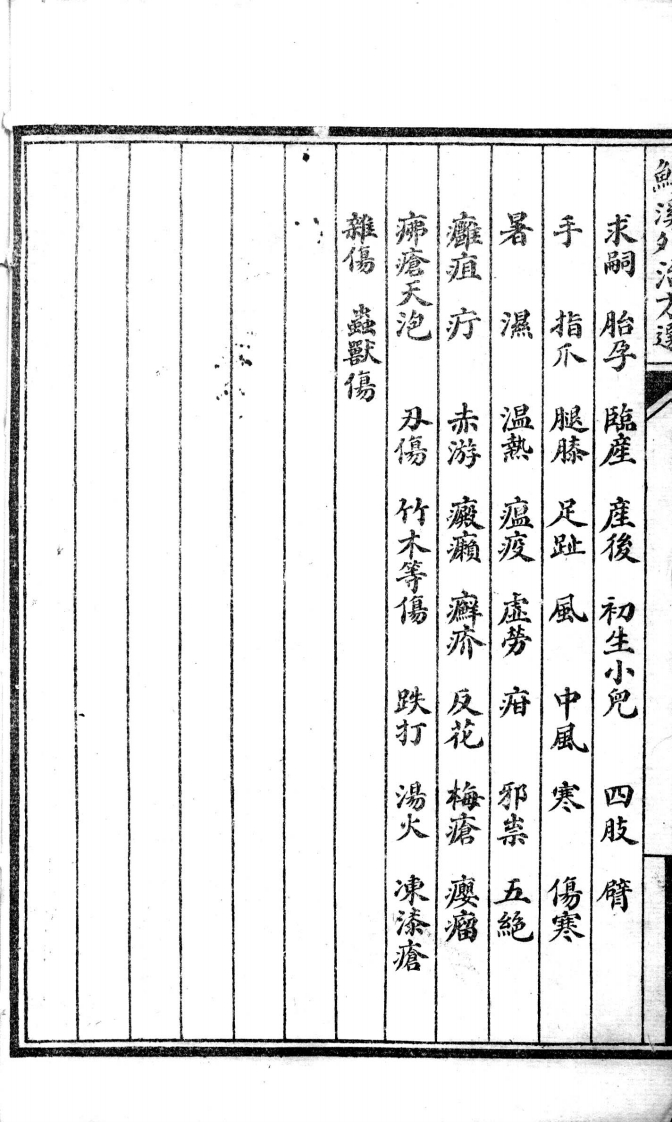 溪外治方選
求嗣 胎孕 臨產 產後 初生小兒 四肢 臂
手 指爪 腿膝 足趾 風 中風 寒 傷寒
暑 濕 温熱 瘟疫 虛勞 疳 邪祟 五絕
癰疽 疔 赤游 癜癩 癬疥 反花 梅瘡 癭瘤
疿瘡天泡 刃傷 竹木等傷 跌打 湯火 凍漆瘡
雜傷 蟲獸傷